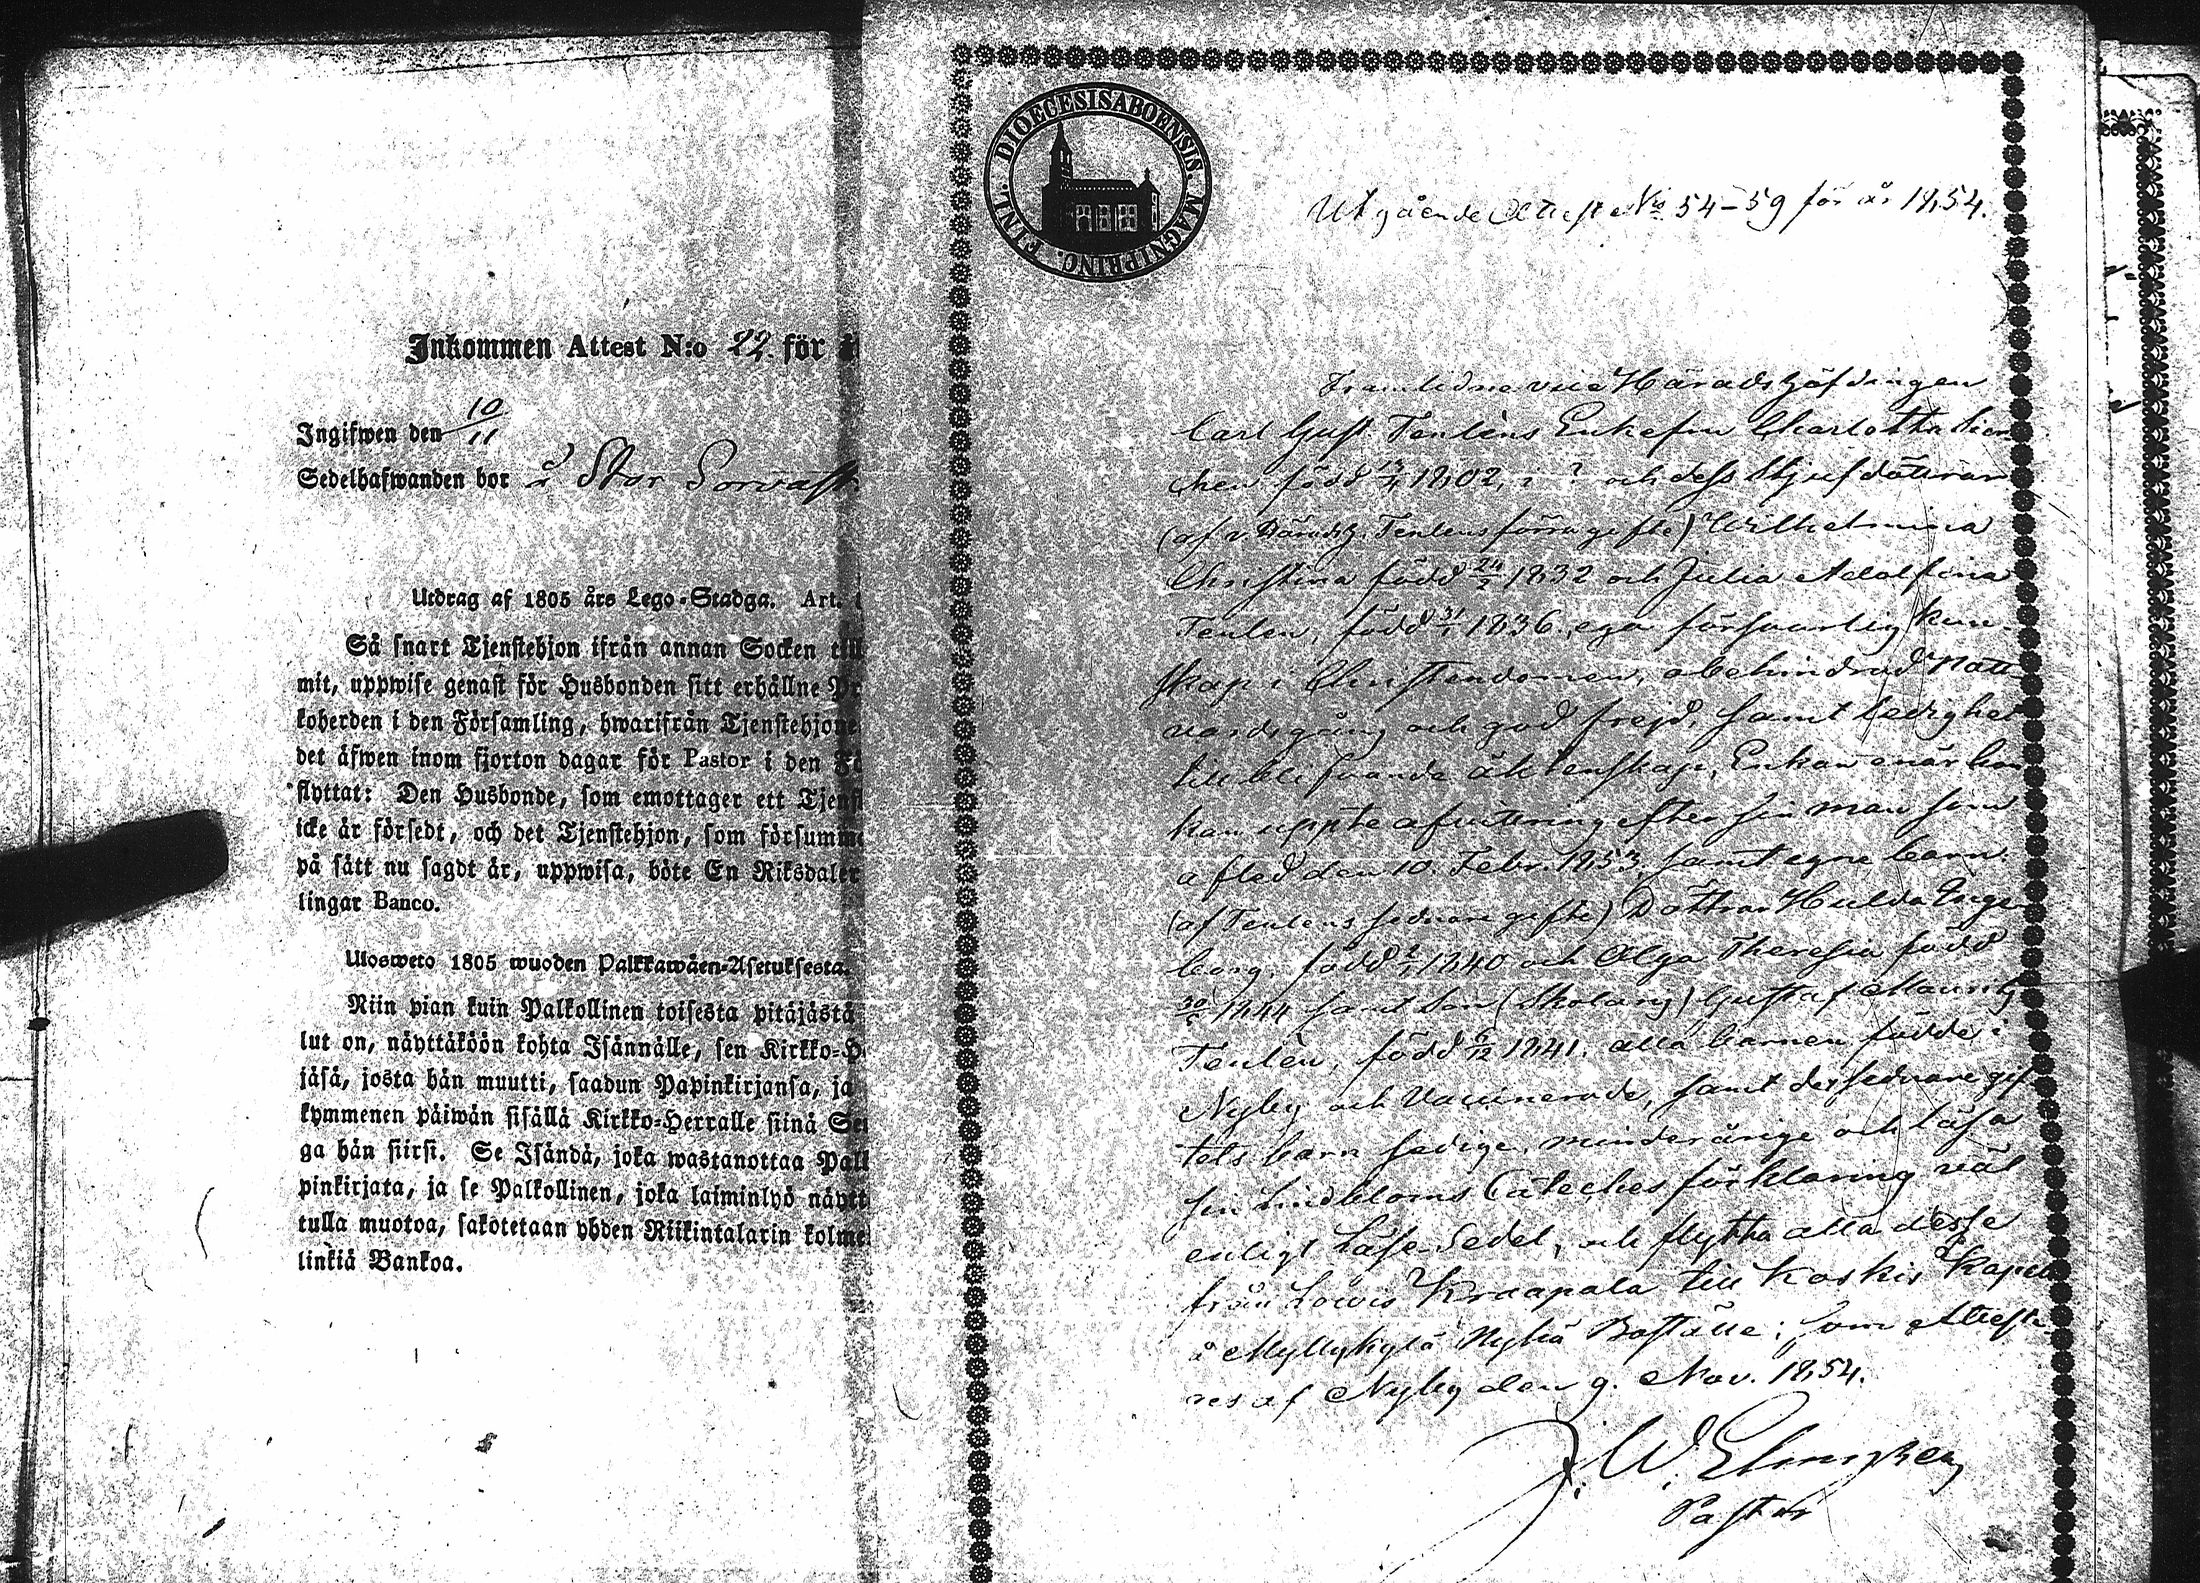 Inkommen Attest N:o 22. för å
Ingifwen den 10/11
Sedelhafwanden bor å Stor Sorvast
Utdrag af 1805 års Lego-Stadga. Art.
Så snart Tjenstehjon ifrån annan Socken till
mit, uppwise genast för Husbonden sitt erhållne Pr
koherden i den Församling, hwarifrån Tjenstehjone
det äfwen inom fjorton dagar för Pastor i den Fö
flyttat: Den Husbonde, som emottager ett Tjenst
icke är försedt, och det Tjenstehjon, som försumme
på sätt nu sagdt är, uppwisa, böte En Riksdaler
lingar Banco.
Ulosweto 1805 wuoden Palkkawäen-Asetuksesta.
Niin pian kuin Palkollinen toisesta pitäjästä
lut on, näyttäköön kohta Isännälle, sen Kirkko-He
jäsä, josta hän muutti, saadun Papinkirjansa, ja
kymmenen päiwän sisällä Kirkko-Herralle siinä Se
ga hän siirsi. Se Isändä, joka wastanottaa Palk
pinkirjata, ja se Palkollinen, joka laiminlyö näytt
tulla muotoa, sakotetaan yhden Riikintalarin kolme
linkiä Bankoa.
FINL. DIOECESIS ABOENSIS MAGNI PRINC.
Utgående Attest No 54-59 för år 1854.
Framlidne vice Häradshöfdingen
Carl Gust. Tenlens Enkefru Charlotta
född 1802, i ? och dess Stjufdöttrar
(af v. Häradsh. Tenlens förra gifte) Wilhelmina
Christina född 24/2 1832 och Julia Adolfina
Tenlen, född 31/1 1836, ega försvarlig kun-
skap i Christendomen, obehindrad Natt-
vardsgång och god frejd, samt ledighet
till blifvande äktenskap, Enkan enär hon
kan uppte afvittring efter sin man som
afled den 10. Febr. 1853, samt egne barn
(af Tenlens sednare gifte) Döttrar Hulda Inge-
borg, född 2/1 1840 och Olga Theresia född
30/ 1844 samt Son (Skolarij) Gustaf Mauritz
Tenlen, född 6/12 1841. alla barnen födde i
Nyby och Vaccinerade, samt det sednare gif-
tets barn sedige, minderårige och läsa
sin Lindbloms Cateches förklaring väl
enligt Läse-Sedel, och flytta alla desse
från Lowis Kraapala till Koskis Kapell
å Myllykylä Boställe; som Atteste-
res af Nyby den 9. Nov. 1854.
J. W.
Pastor